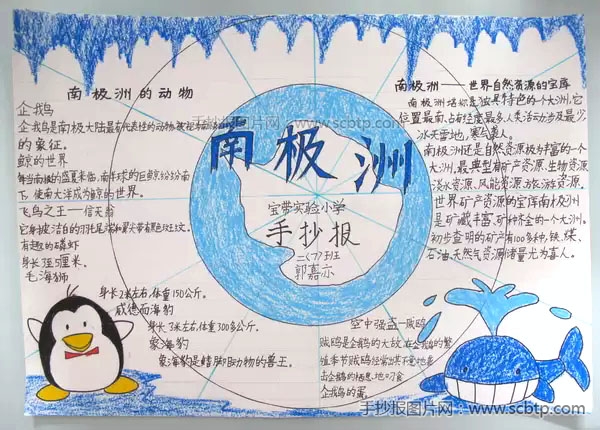 南极洲的动物
企我鸟
企我鸟是南极大陆最有代表性的动物,被视为南极
的象征。
鲸的世界
每当南极的盛夏来临,南半球的巨鲸纷纷南
下,使南大洋成为鲸的世界。
飞鸟之王——信天翁
有趣的磷虾
身长厘米。
毛海狮
身长2米左右,体重150公斤。
威德而海豹
身长3米左右,体重300多公斤。
象海豹
象海豹是鳍脚动物的兽王。
南极洲
宝带实验小学
手抄报
二(7)班
郭嘉示
南极洲——世界自然资源的宝库
南极洲堪称是独具特色的一个大洲,它
位置最南,占有经度最多,人类活动涉及最少,
冰天雪地,寒气袭人。
南极洲还是自然资源极为丰富的一个
大洲,最典型有矿产资源、生物资源、
淡水资源、风能资源、旅游资源。
世界矿产资源的宝库南极洲
是矿藏丰富、矿种齐全的一个大洲。
初步查明的矿产有100多种,铁、煤、
石油、天然气资源储量尤为喜人。
空中强盗—贼鸥
贼鸥是企鹅的大敌,在企鹅的繁
殖季节贼鸥经常出其不意地袭
击企鹅的栖息地,叼食
企我鸟的蛋。
手抄报图片网:www.scbtp.com
手抄报图片网:www.scbtp.com